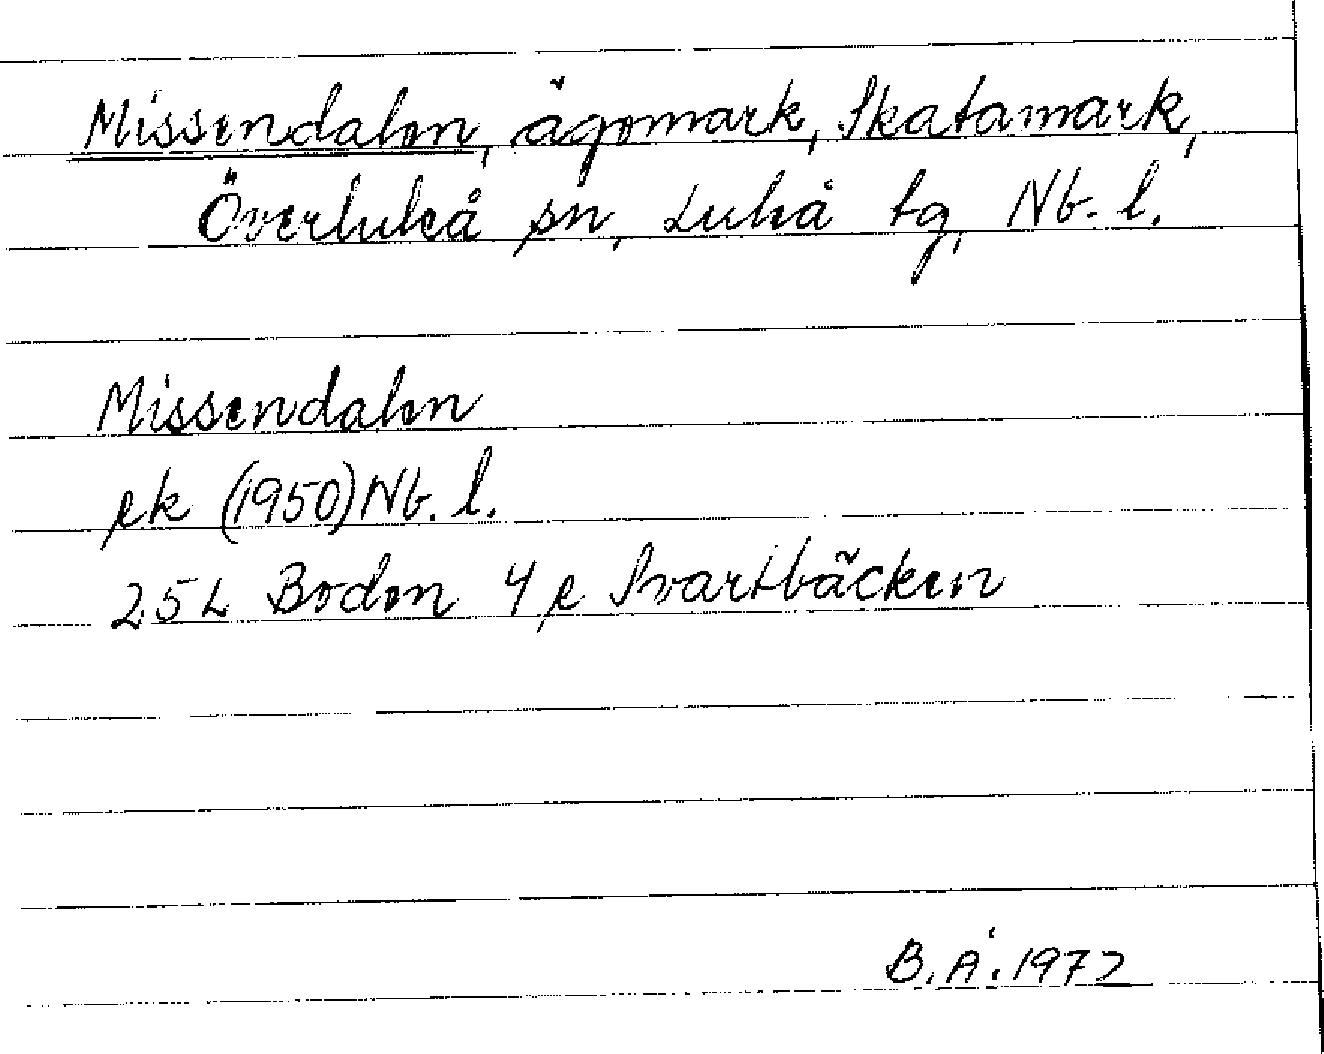 Missendalen, ägomark, Skatamark,
Överluleå sn, Luleå tg, Nb. l.
Missendalen
ek (1950) Nb. l.
25L Boden 4 e Svartbäcken
B. Å. 1972